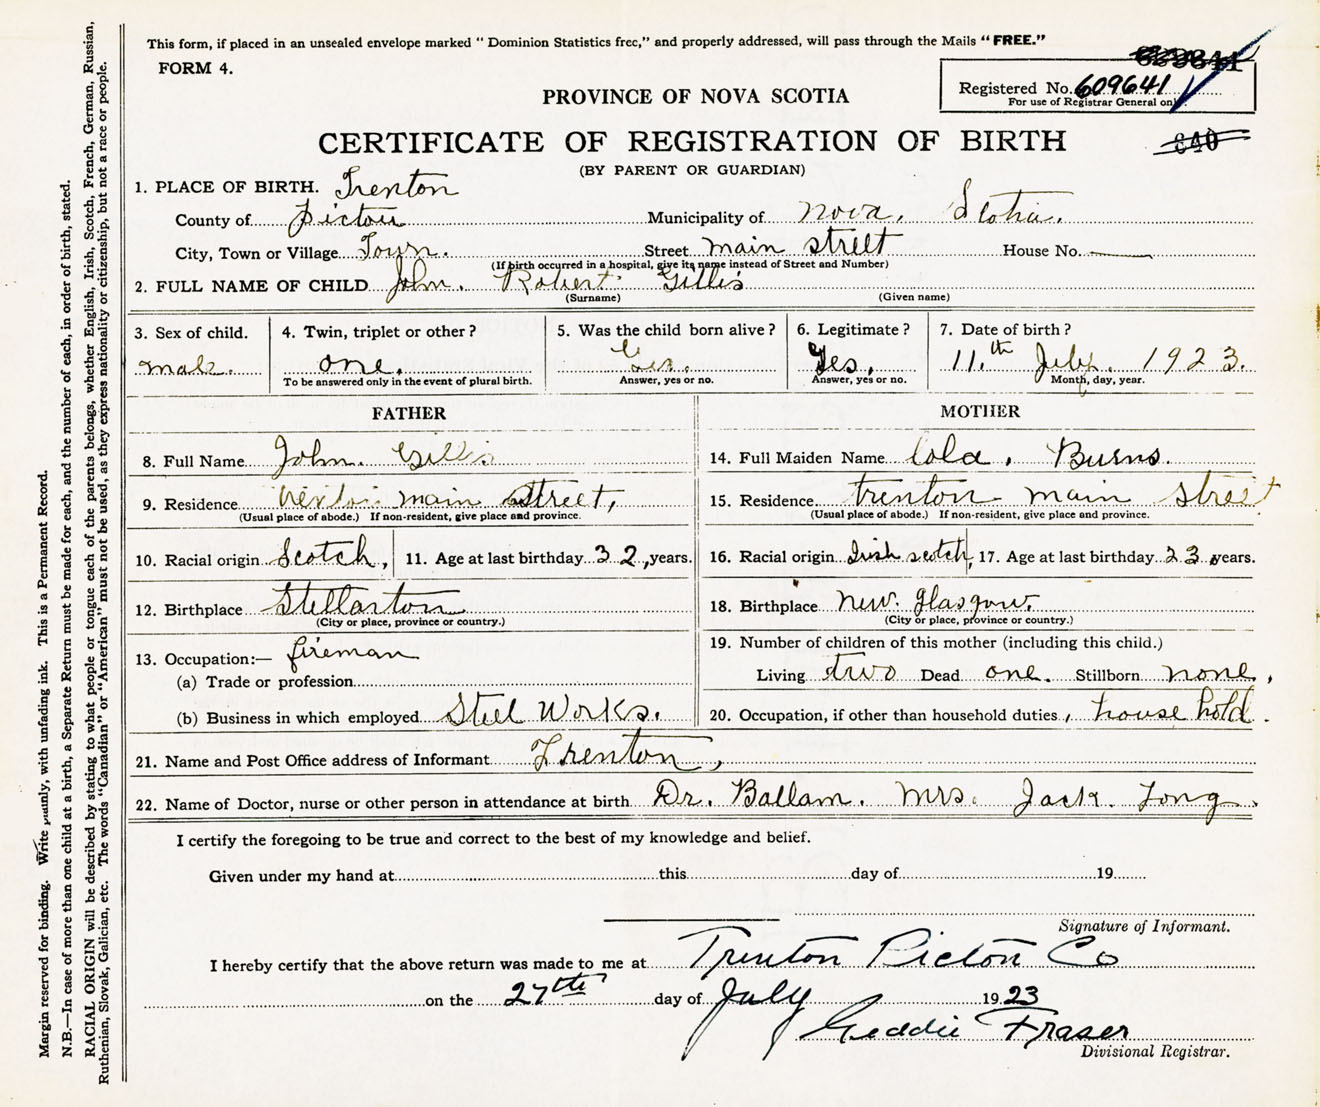 This form, if placed in an unsealed envelope marked "Dominion Statistics free," and properly addressed, will pass through the Mails "FREE."
FORM 4.
Registered No. 609641
For use of Registrar General only
PROVINCE OF NOVA SCOTIA
CERTIFICATE OF REGISTRATION OF BIRTH
840
(BY PARENT OR GUARDIAN)
1. PLACE OF BIRTH. Trenton
County of Pictou Municipality of Nova. Scotia.
City, Town or Village Town. Street main street House No.
(If birth occurred in a hospital, give its name instead of Street and Number)
2. FULL NAME OF CHILD John. Robert Gillis
(Surname) (Given name)
3. Sex of child. 4. Twin, triplet or other? 5. Was the child born alive? 6. Legitimate? 7. Date of birth?
male. one. Yes. Yes. 11.th July. 1923.
To be answered only in the event of plural birth. Answer, yes or no. Answer, yes or no. Month, day, year.
FATHER MOTHER
8. Full Name John. Gillis 14. Full Maiden Name Cola, Burns.
9. Residence trenton main Street, 15. Residence trenton main street
(Usual place of abode.) If non-resident, give place and province. (Usual place of abode.) If non-resident, give place and province.
10. Racial origin Scotch, 11. Age at last birthday 32, years. 16. Racial origin Irish scotch, 17. Age at last birthday 23 years.
12. Birthplace Stellarton 18. Birthplace New. Glasgow.
(City or place, province or country.) (City or place, province or country.)
13. Occupation:— fireman 19. Number of children of this mother (including this child.)
(a) Trade or profession Living two Dead one. Stillborn none,
(b) Business in which employed Steel Works. 20. Occupation, if other than household duties, house hold.
21. Name and Post Office address of Informant Trenton,
22. Name of Doctor, nurse or other person in attendance at birth Dr. Ballam. Mrs. Jack. Long.
I certify the foregoing to be true and correct to the best of my knowledge and belief.
Given under my hand at this day of 19
Signature of Informant.
I hereby certify that the above return was made to me at Trenton Pictou Co
on the 27th day of July 1923
Geddie Fraser
Divisional Registrar.
Margin reserved for binding. Write plainly, with unfading ink. This is a Permanent Record.
N.B.—In case of more than one child at a birth, a Separate Return must be made for each, and the number of each, in order of birth, stated.
RACIAL ORIGIN will be described by stating to what people or tongue each of the parents belongs, whether English, Irish, Scotch, French, German, Russian,
Ruthenian, Slovak, Galician, etc. The words "Canadian" or "American" must not be used, as they express nationality or citizenship, but not a race or people.